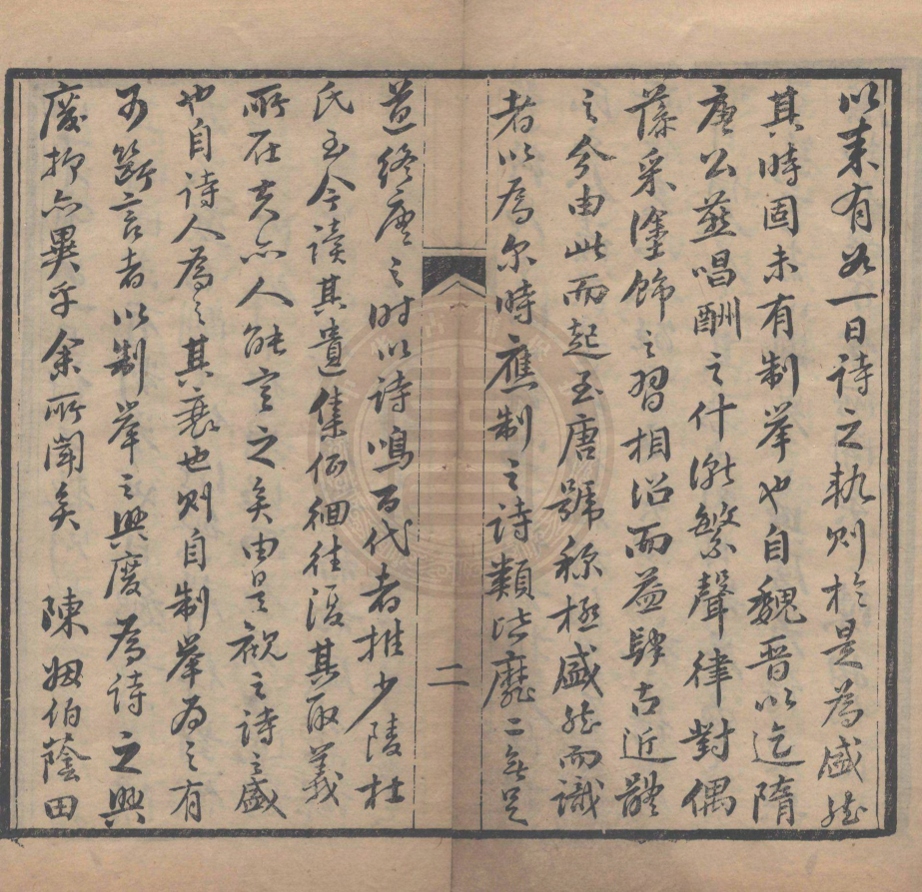 以来有如一日詩之軌則於是為盛然
其時固未有制举也自魏晋以迄隋
唐公燕唱酬之什漸繁聲律對偶
藻采塗飾之習相沿而益肆古近體
之分由此而起至唐號称極盛然而識
者以為尔時應制之詩類皆靡二無足
道終唐之时以诗鳴百代者推少陵杜
氏至今讀其遺集低徊往復其取義
所在夫亦人能言之矣由是观之诗之盛
也自诗人為之其衰也则自制举為之有
可断言者以制举之興廢為詩之興
廢抑亦異乎余所闻矣 陳姻伯蔭田
二